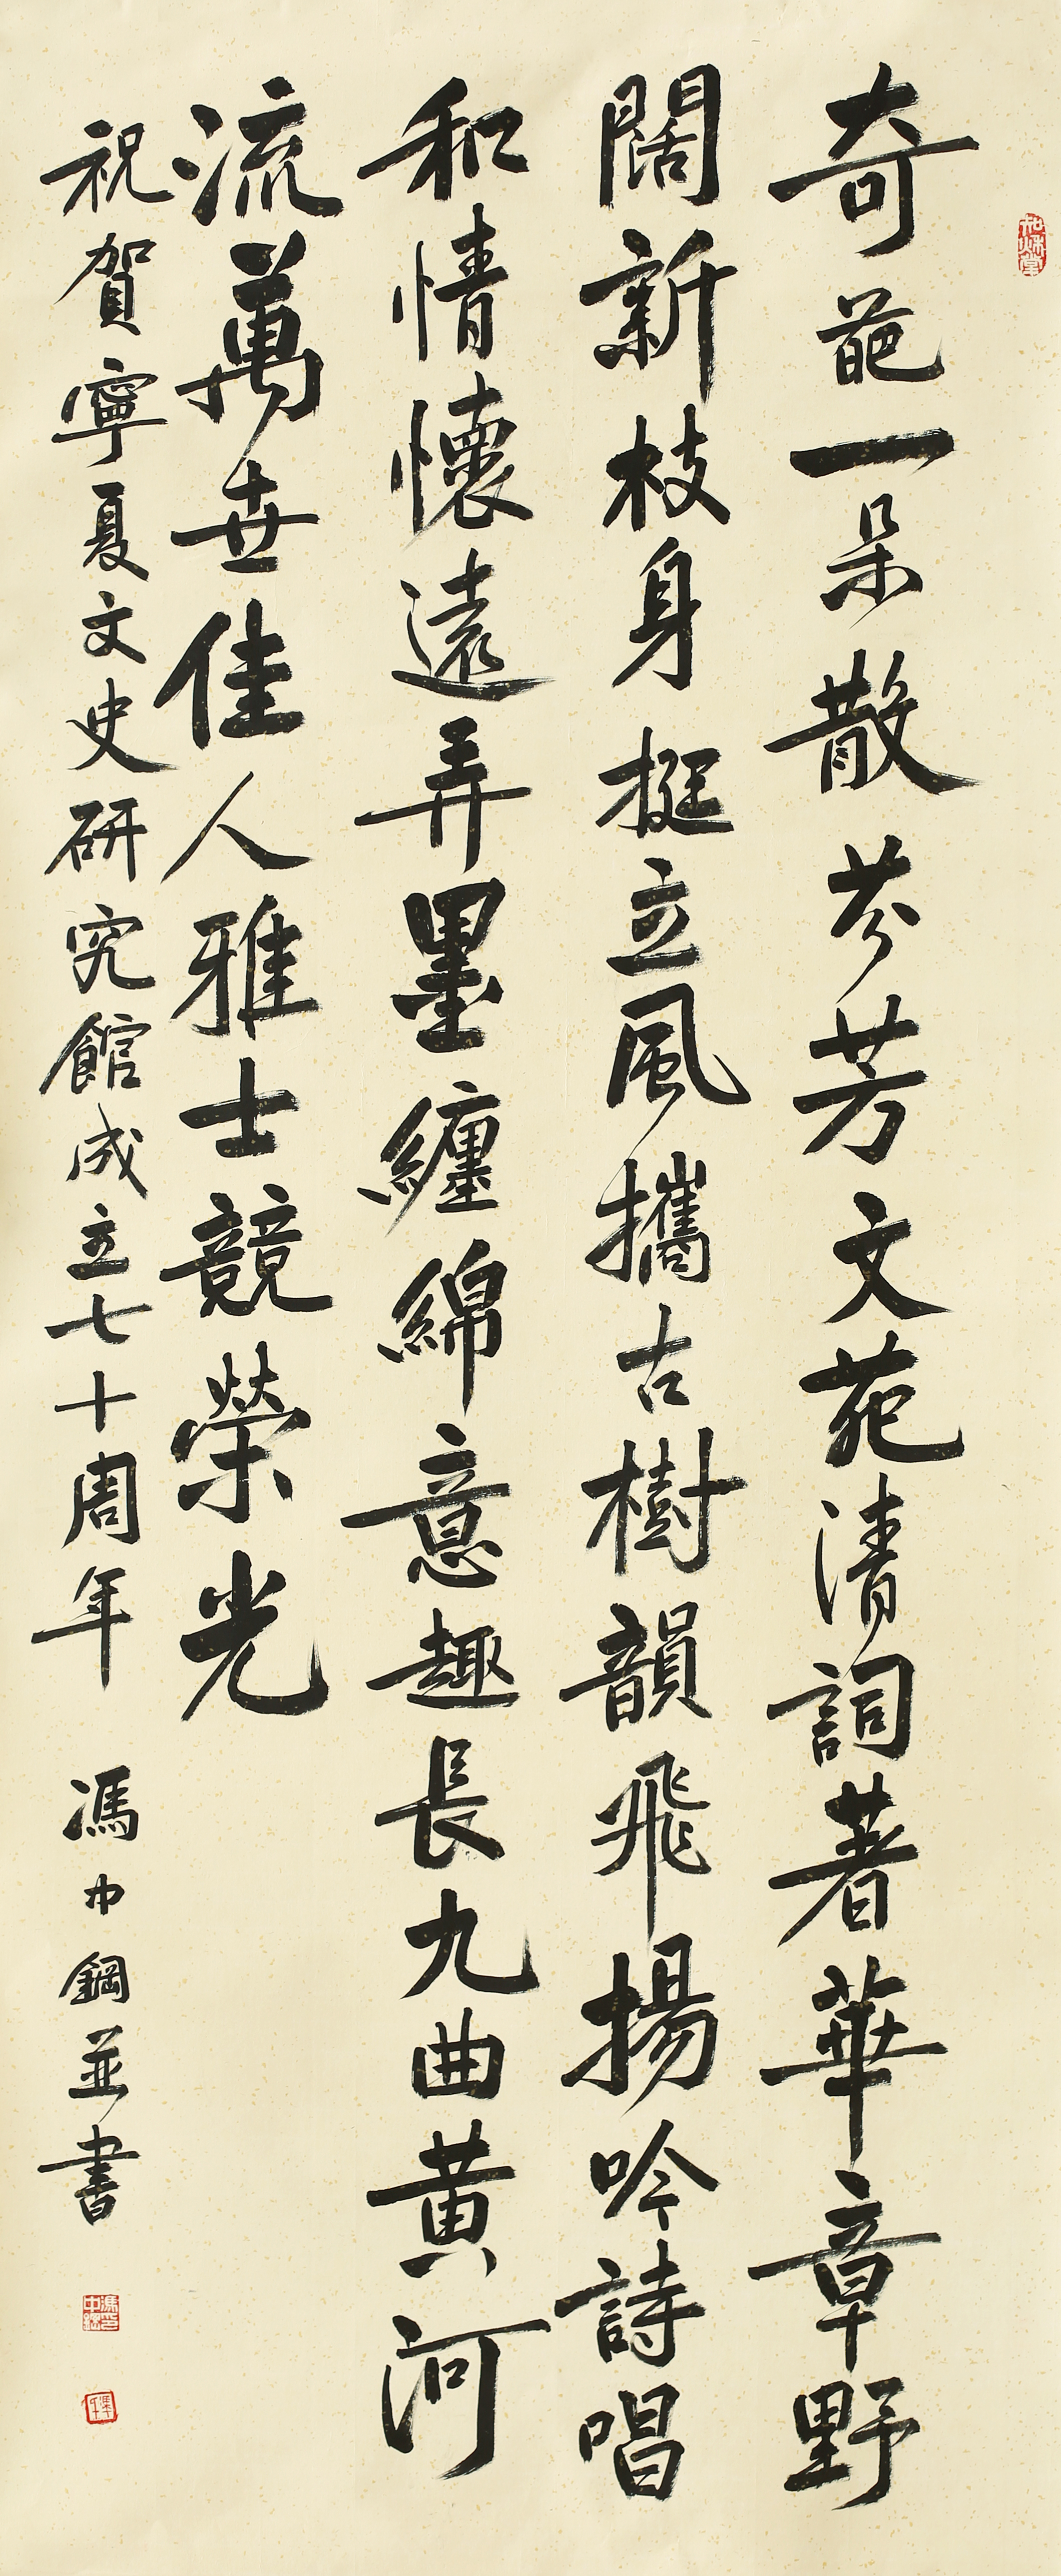 奇葩一朵散芬芳文苑清詞著華章野
闊新枝身挺立風攜古樹韻飛揚吟詩唱
和情懷遠弄墨纏綿意趣長九曲黃河
流萬世佳人雅士競榮光
祝賀寧夏文史研究館成立七十周年 馮中鋼並書